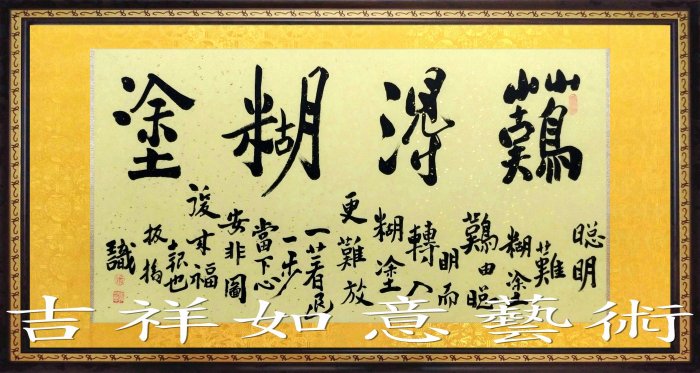 難得糊塗
聰明
難
糊塗
難由聰
明而
轉入
糊塗
更難放
一著退
一步
當下心
安非圖
後來福
報也
板橋
識
吉祥如意藝術